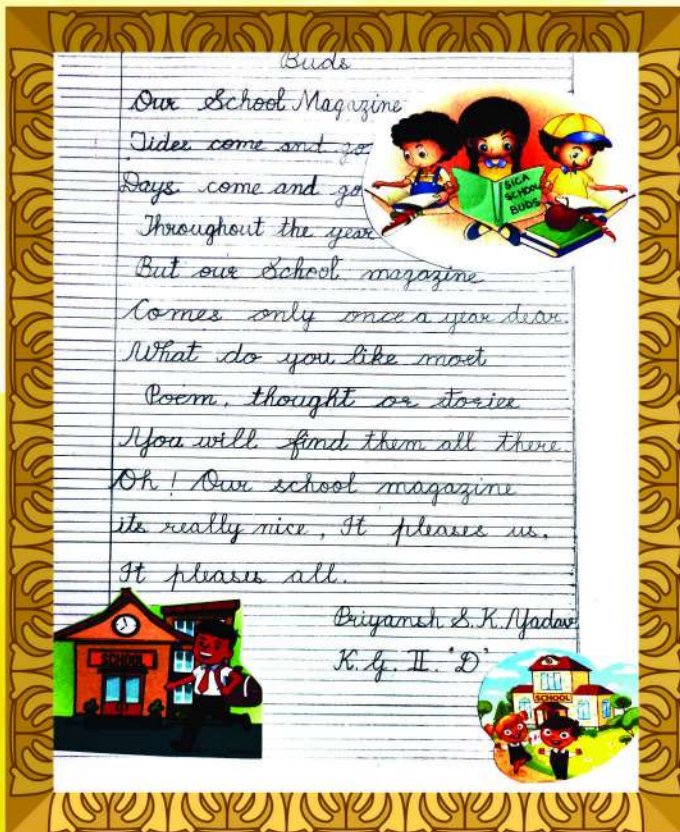 Buds
Our School Magazine
Tides come and go
Days come and go
Throughout the year
But our School magazine
Comes only once a year dear.
What do you like most
Poem, thought or stories
You will find them all there.
Oh! Our school magazine
its really nice, It pleases us,
It pleases all.
Priyansh S.K. Yadav
K.G. II. 'D'
SICA
SCHOOL
BUDS
SCHOOL
SCHOOL